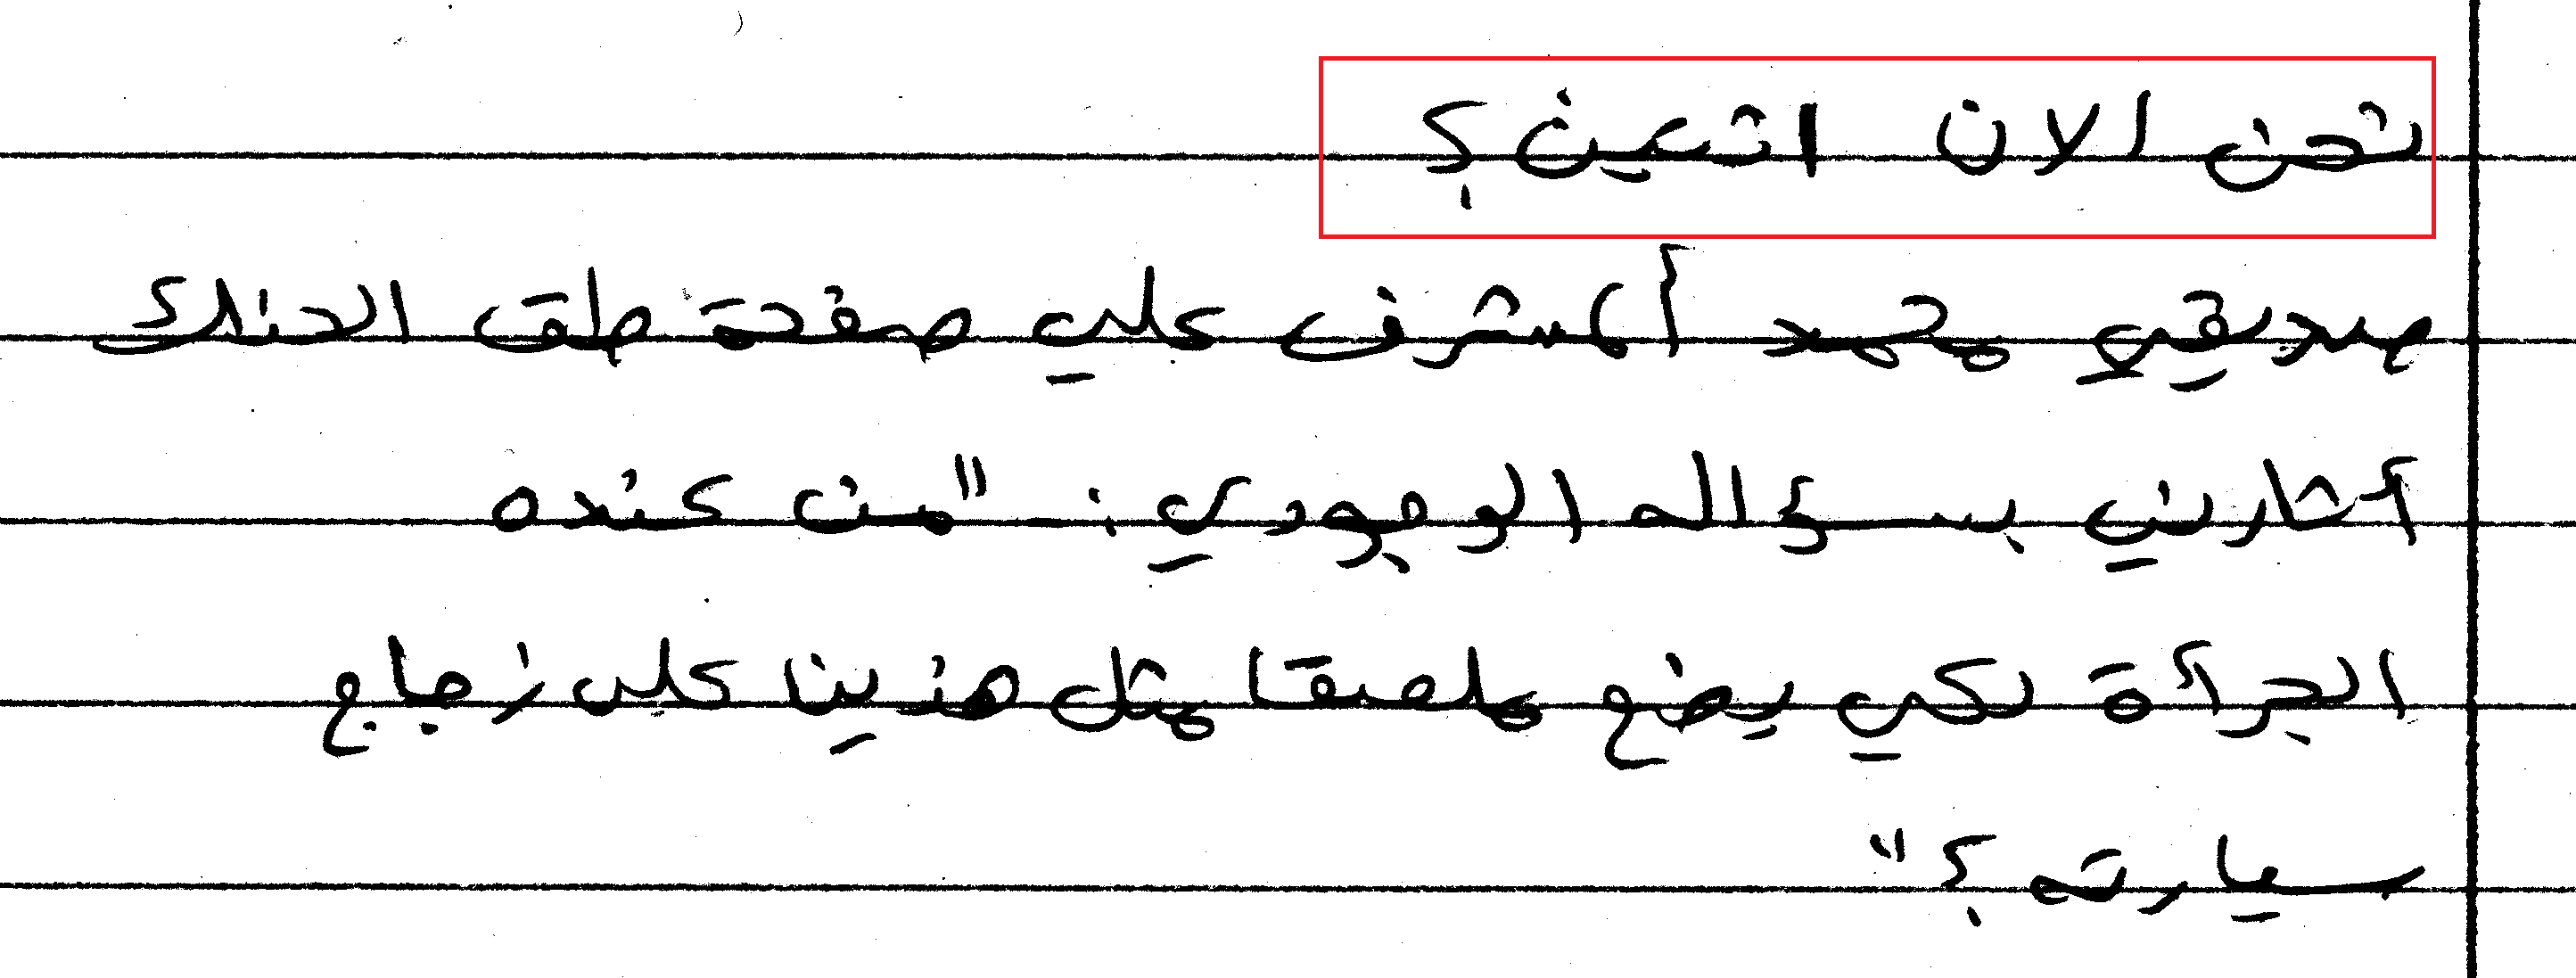 نحن الان اثنين؟
صديقي محمد ألمشرف علي صفحة طق الحنك
أثارني بسؤاله الوجودي: "من عنده
الجرأة لكي يضع ملصقا مثل هذين على زجاج
سيارته؟"